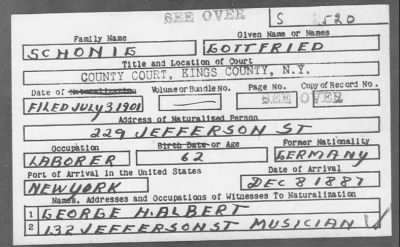 SEE OVER S 520
Family Name Given Name or Names
SCHONIG GOTTFRIED
Title and Location of Court
COUNTY COURT, KINGS COUNTY, N.Y.
Date of Naturalization Volume or Bundle No. Page No. Copy of Record No.
FILED JULY 3, 1901 SEE OVER
Address of Naturalized Person
229 JEFFERSON ST
Occupation Birth Date or Age Former Nationality
LABORER 62 GERMANY
Port of Arrival in the United States Date of Arrival
NEW YORK DEC 8 1887
Names, Addresses and Occupations of Witnesses To Naturalization
1 GEORGE H. ALBERT
2 132 JEFFERSON ST MUSICIAN